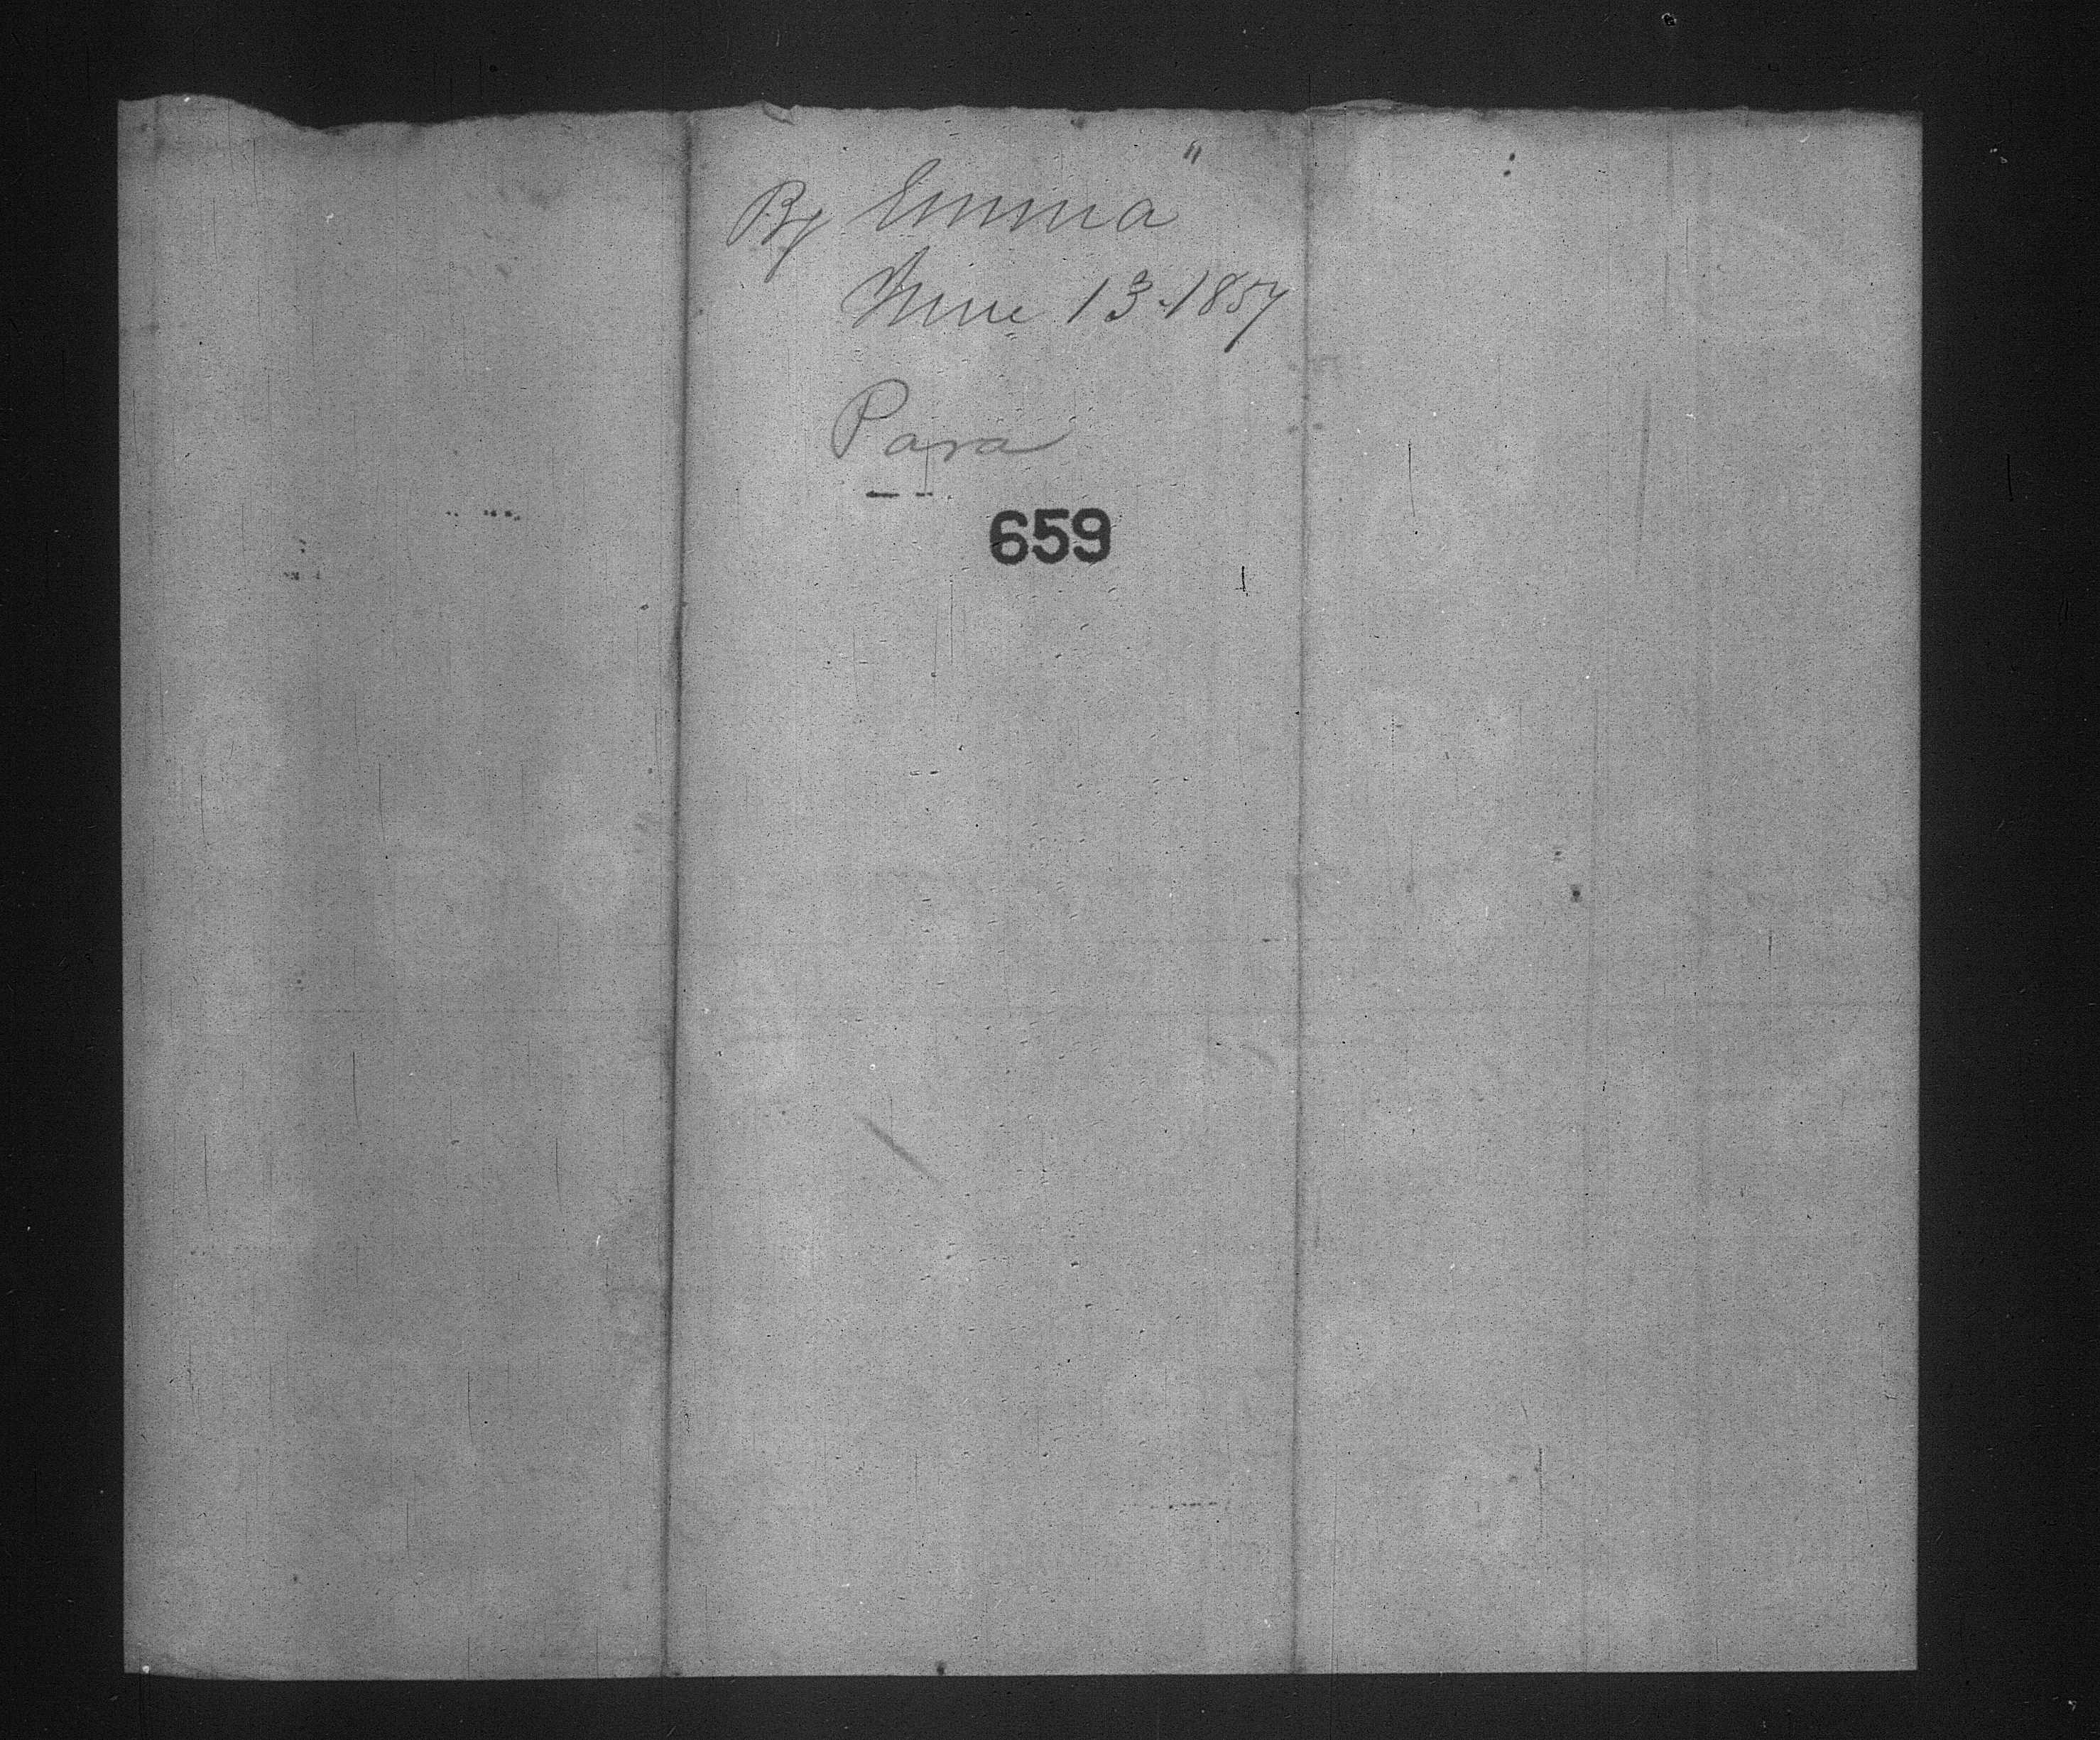 By Emma"
June 13-1857
Para
659